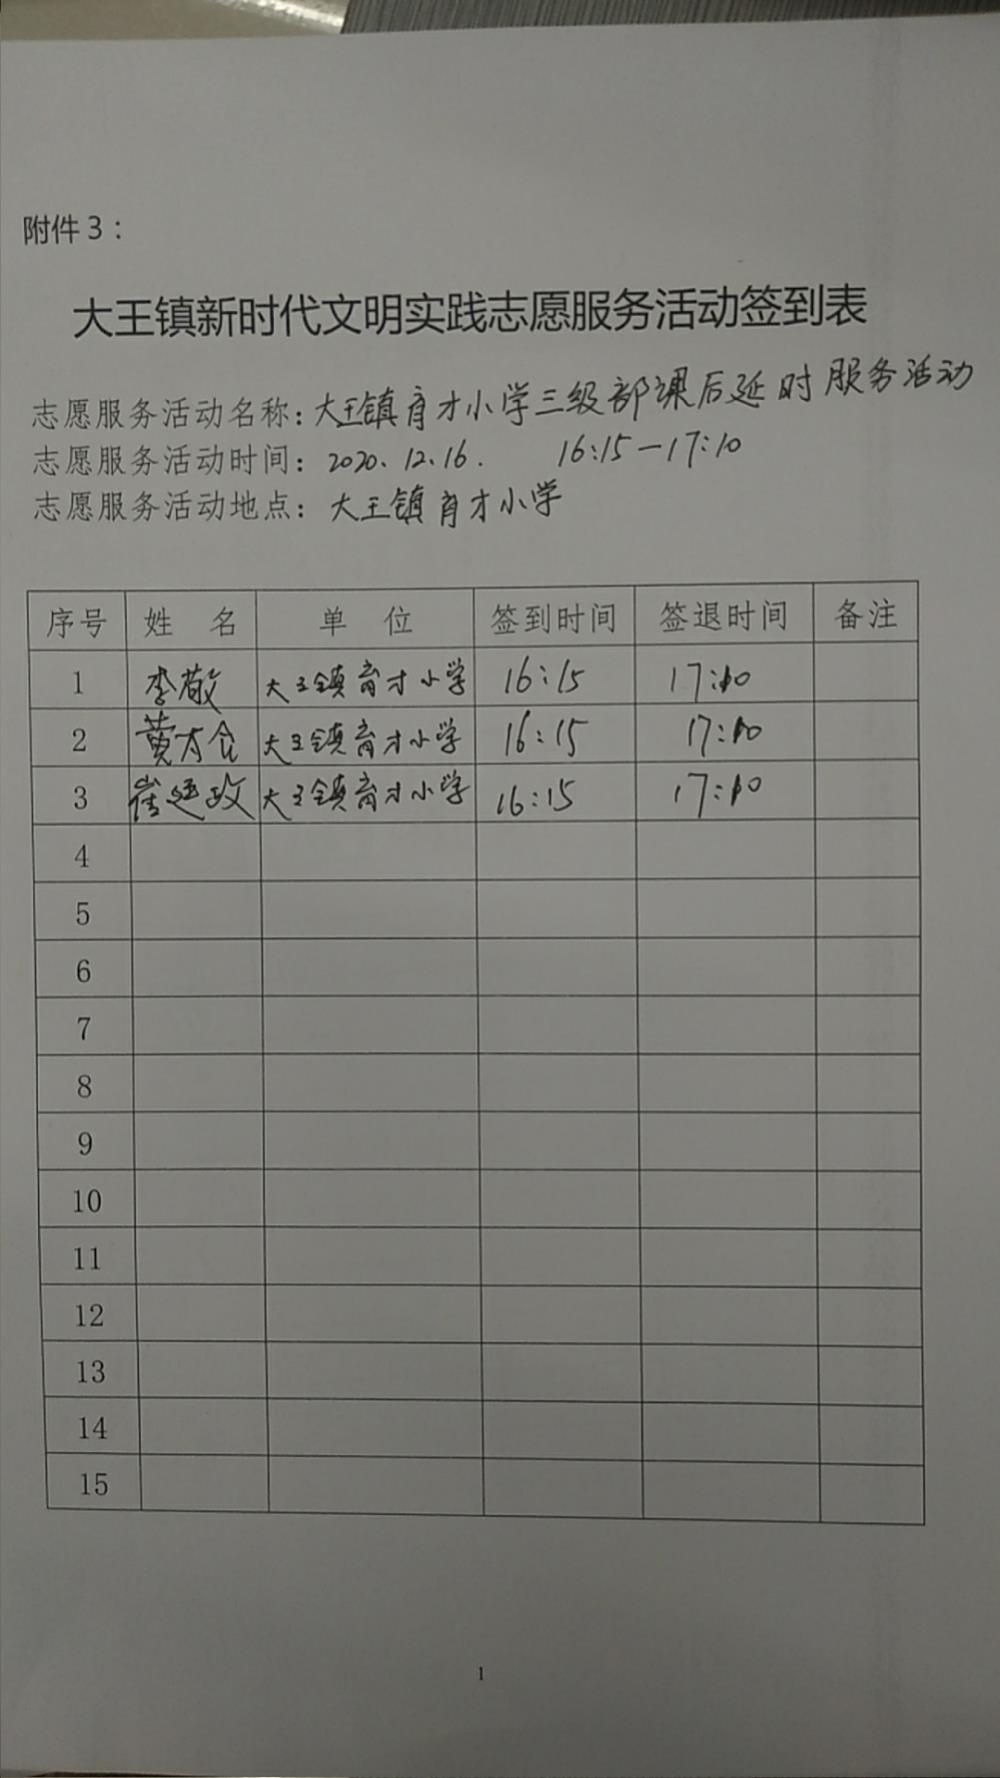 附件3：
大王镇新时代文明实践志愿服务活动签到表
志愿服务活动名称：大王镇育才小学三级部课后延时服务活动
志愿服务活动时间：2020.12.16. 16:15—17:10
志愿服务活动地点：大王镇育才小学
序号 姓 名 单 位 签到时间 签退时间 备注
1 李敬 大王镇育才小学 16:15 17:10
2 黄方仓 大王镇育才小学 16:15 17:10
3 崔廷政 大王镇育才小学 16:15 17:10
4
5
6
7
8
9
10
11
12
13
14
15
1